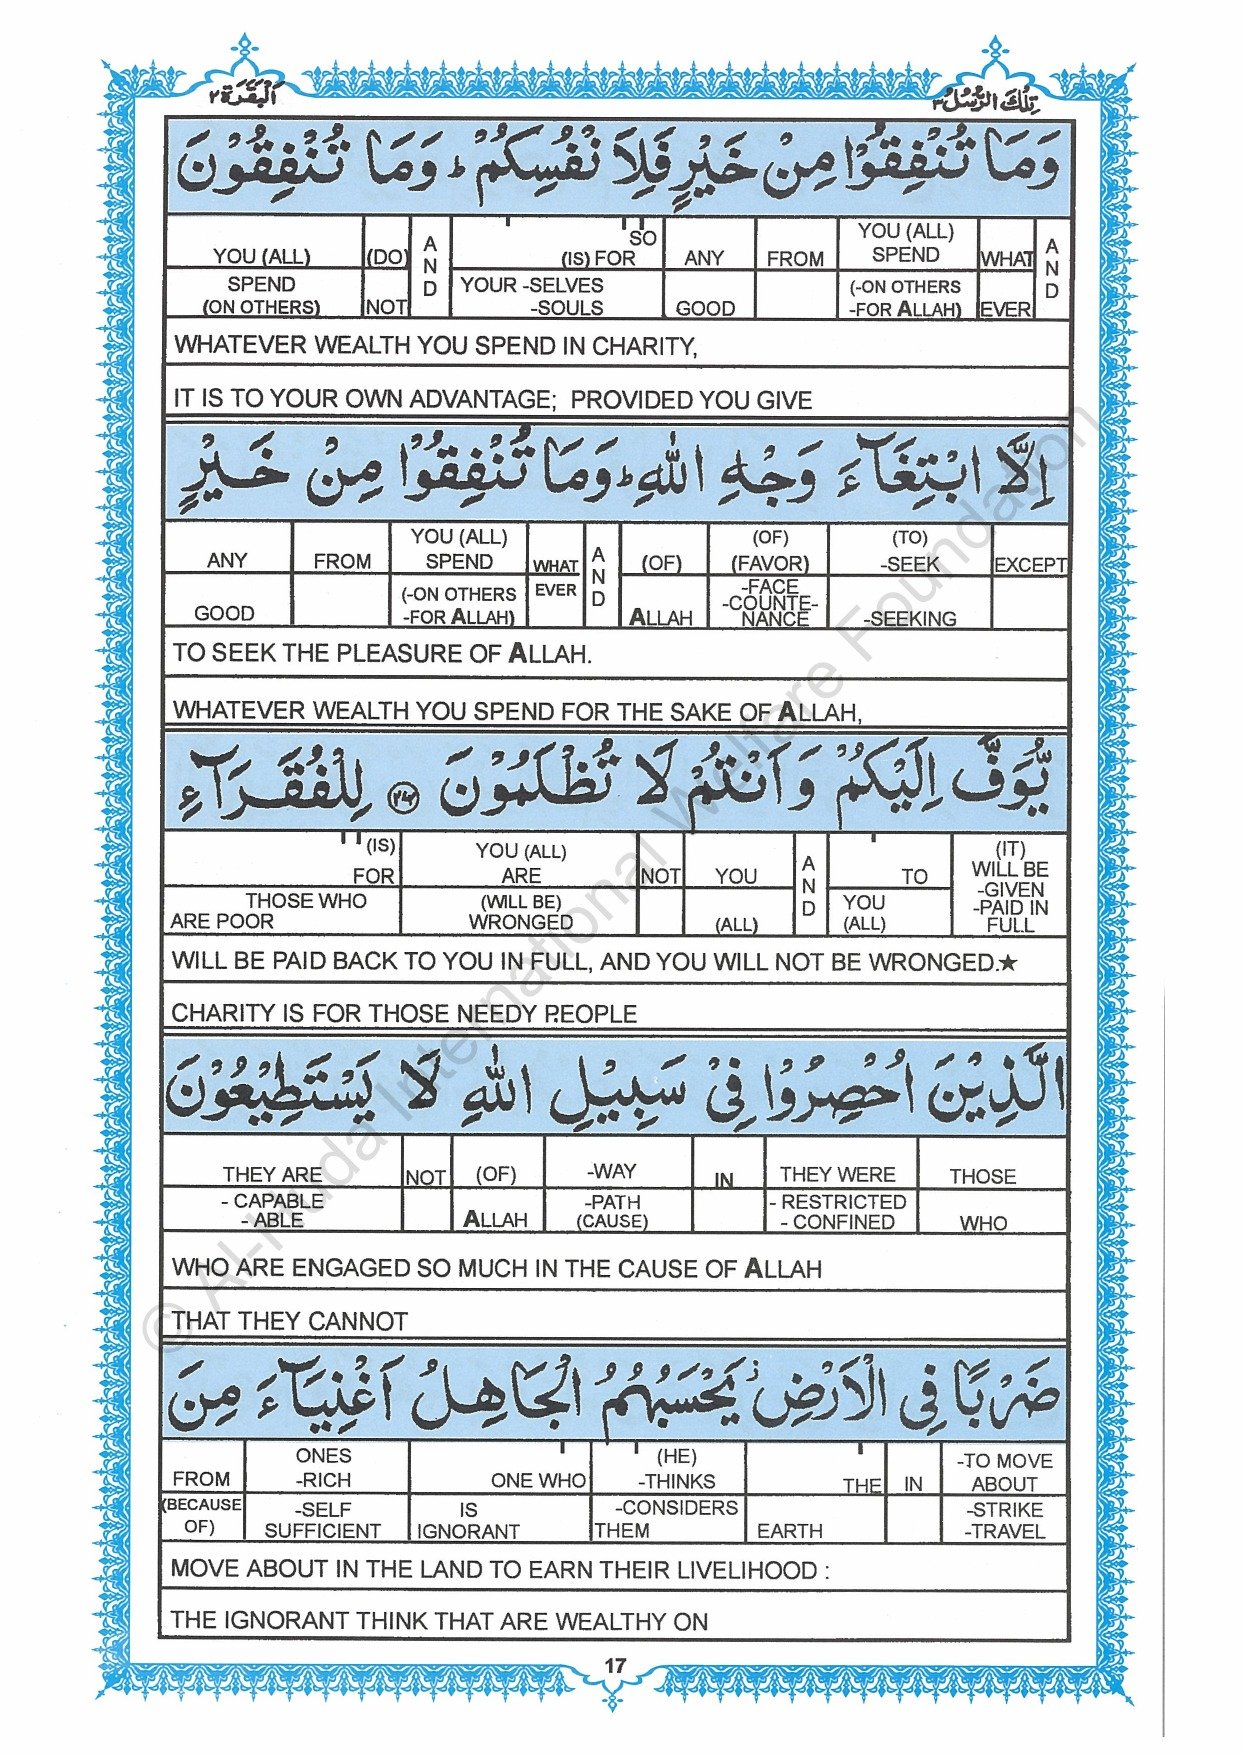 تِلْكَ الرُّسُلُ ٣
اَلْبَقَرَة ٢
وَمَا تُنْفِقُوْا مِنْ خَيْرٍ فَلِاَ نْفُسِكُمْ ؕ وَمَا تُنْفِقُوْنَ
YOU (ALL) (DO) AND SO (IS) FOR ANY FROM YOU (ALL) SPEND WHAT AND
SPEND (ON OTHERS) NOT YOUR -SELVES -SOULS GOOD (-ON OTHERS -FOR ALLAH) EVER
WHATEVER WEALTH YOU SPEND IN CHARITY,
IT IS TO YOUR OWN ADVANTAGE; PROVIDED YOU GIVE
اِلَّا ابْتِغَآءَ وَجْهِ اللّٰهِ ؕ وَمَا تُنْفِقُوْا مِنْ خَيْرٍ
ANY FROM YOU (ALL) SPEND WHAT AND (OF) (OF) (FAVOR) (TO) -SEEK EXCEPT
GOOD (-ON OTHERS -FOR ALLAH) EVER ALLAH -FACE -COUNTE- NANCE -SEEKING
TO SEEK THE PLEASURE OF ALLAH.
WHATEVER WEALTH YOU SPEND FOR THE SAKE OF ALLAH,
يُّوَفَّ اِلَيْكُمْ وَ اَنْتُمْ لَا تُظْلَمُوْنَ ﴿٢٧٢﴾ لِلْفُقَرَآءِ
(IS) FOR YOU (ALL) ARE NOT YOU AND TO (IT) WILL BE -GIVEN -PAID IN FULL
THOSE WHO ARE POOR (WILL BE) WRONGED (ALL) YOU (ALL)
WILL BE PAID BACK TO YOU IN FULL, AND YOU WILL NOT BE WRONGED.★
CHARITY IS FOR THOSE NEEDY PEOPLE
الَّذِيْنَ اُحْصِرُوْا فِيْ سَبِيْلِ اللّٰهِ لَا يَسْتَطِيْعُوْنَ
THEY ARE NOT (OF) -WAY IN THEY WERE THOSE
- CAPABLE - ABLE ALLAH -PATH (CAUSE) - RESTRICTED - CONFINED WHO
WHO ARE ENGAGED SO MUCH IN THE CAUSE OF ALLAH
THAT THEY CANNOT
ضَرْبًا فِي الْاَرْضِ ؗ يَحْسَبُهُمُ الْجَاهِلُ اَغْنِيَآءَ مِنَ
FROM ONES -RICH ONE WHO (HE) -THINKS THE IN -TO MOVE ABOUT
(BECAUSE OF) -SELF SUFFICIENT IS IGNORANT -CONSIDERS THEM EARTH -STRIKE -TRAVEL
MOVE ABOUT IN THE LAND TO EARN THEIR LIVELIHOOD :
THE IGNORANT THINK THAT ARE WEALTHY ON
17
© Al-Huda International Welfare Foundation